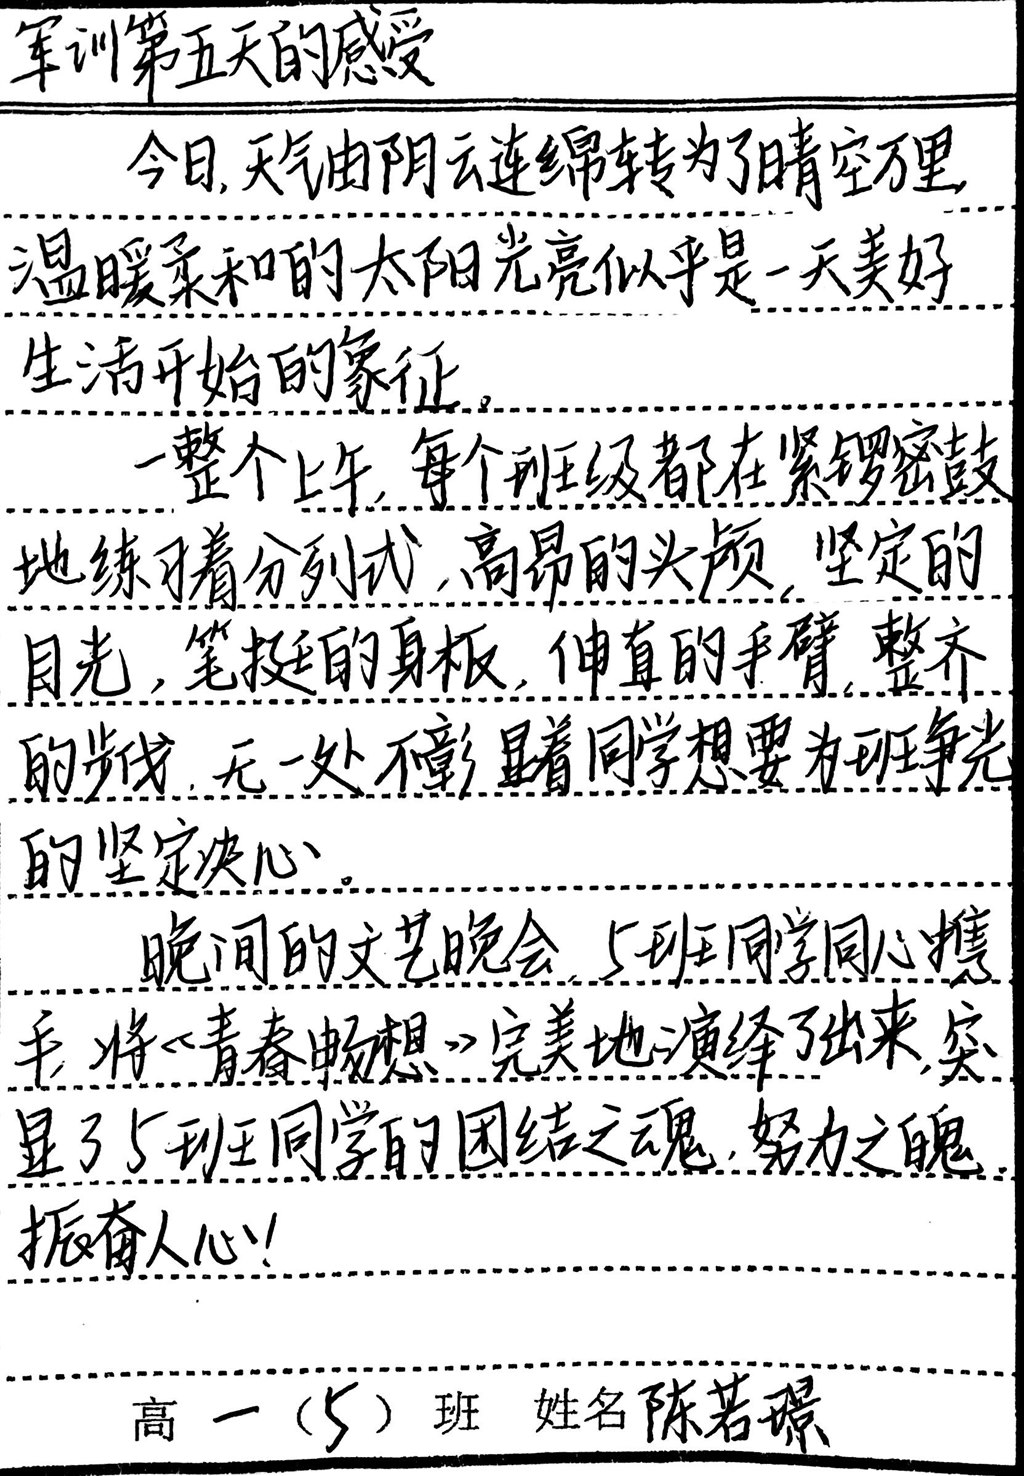 军训第五天的感受
今日,天气由阴云连绵转为了晴空万里,
温暖柔和的太阳光亮似乎是一天美好
生活开始的象征。
一整个上午,每个班级都在紧锣密鼓
地练习着分列式,高昂的头颅,坚定的
目光,笔挺的身板,伸直的手臂,整齐
的步伐,无一处不彰显着同学想要为班争光
的坚定决心。
晚间的文艺晚会,5班同学同心携
手,将《青春畅想》完美地演绎了出来,突
显了5班同学的团结之魂,努力之魄,
振奋人心!
高一(5)班 姓名陈若璟